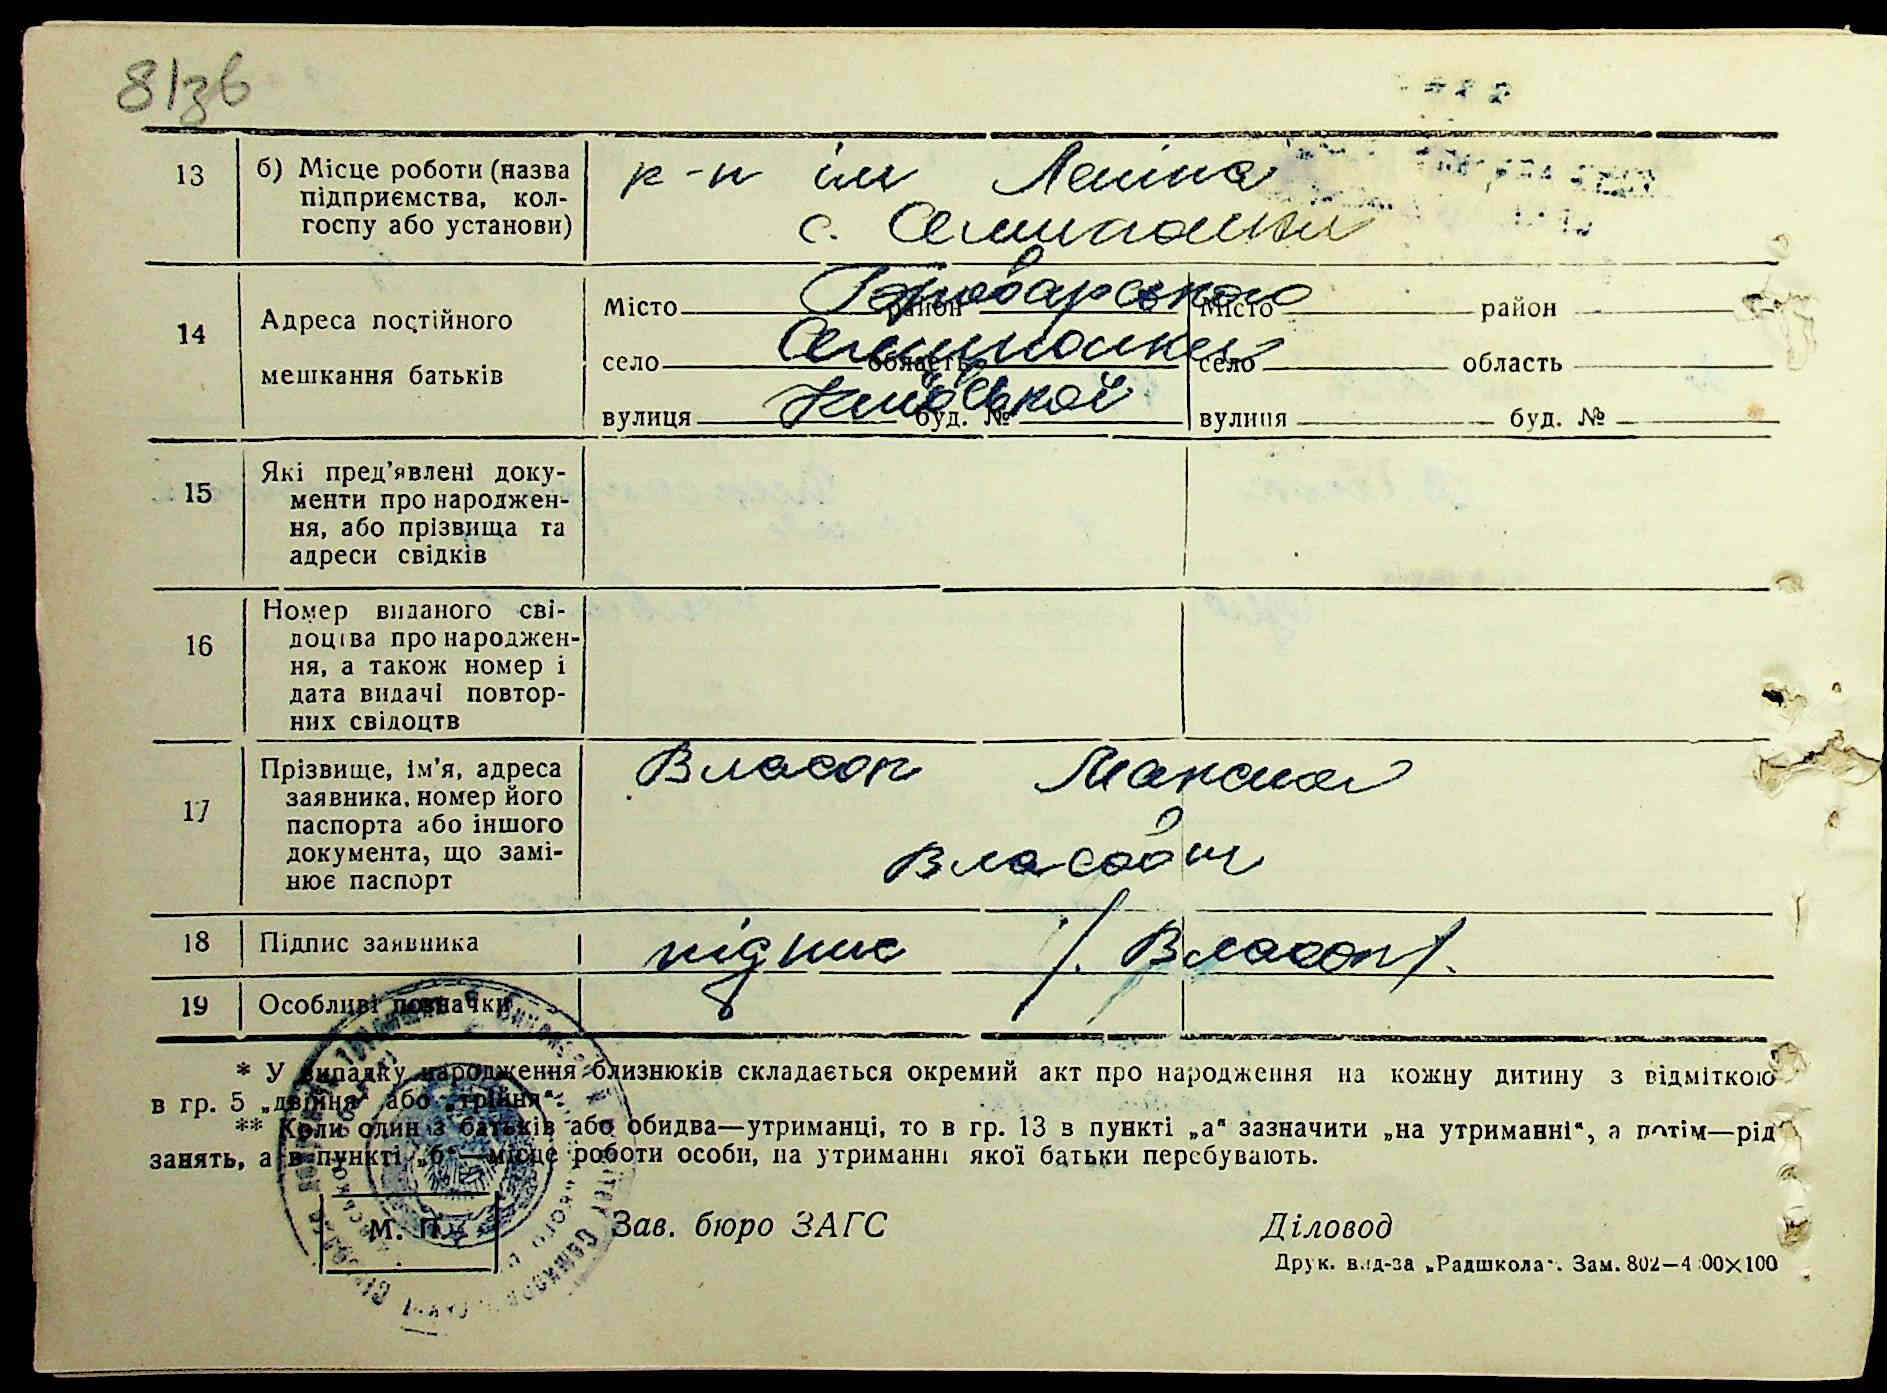 81зв
13
б) Місце роботи (назва
підприємства, кол-
госпу або установи)
к-п ім Леніна
с. Семиполки
14
Адреса постійного
мешкання батьків
Місто район Місто район
Броварського
село область село область
Семиполки
вулиця буд. № вулиця буд. №
Київської
15
Які пред'явлені доку-
менти про народжен-
ня, або прізвища та
адреси свідків
16
Номер виданого сві-
доцтва про народжен-
ня, а також номер і
дата видачі повтор-
них свідоцтв
17
Прізвище, ім'я, адреса
заявника, номер його
паспорта або іншого
документа, що замі-
нює паспорт
Власон
18
Підпис заявника
підпис / Власон /.
19
Особливі позначки
* У випадку народження близнюків складається окремий акт про народження на кожну дитину з відміткою
в гр. 5 „двійня“ або „трійня“.
** Коли один з батьків або обидва—утриманці, то в гр. 13 в пункті „а“ зазначити „на утриманні“, а потім—рід
занять, а в пункті „б“—місце роботи особи, на утриманні якої батьки перебувають.
М. П.
Зав. бюро ЗАГС
Діловод
Друк. вид-за „Радшкола“. Зам. 802—4 00×100